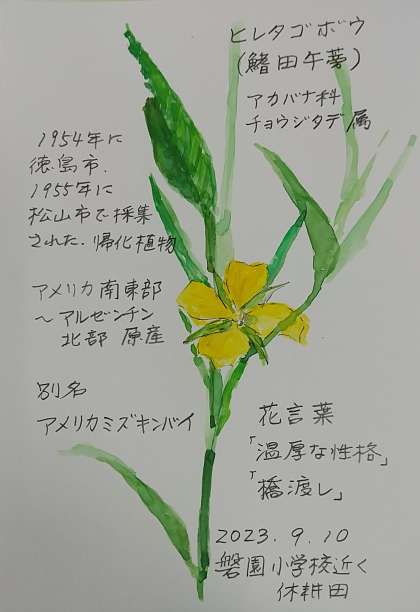 ヒレタゴボウ
(鰭田午蒡)
アカバナ科
チョウジタデ属
1954年に
徳島市.
1955年に
松山市で採集
された.帰化植物
アメリカ南東部
〜アルゼンチン
北部 原産
別名
アメリカミズキンバイ
花言葉
「温厚な性格」
「橋渡し」
2023.9.10
磐園小学校近く
休耕田